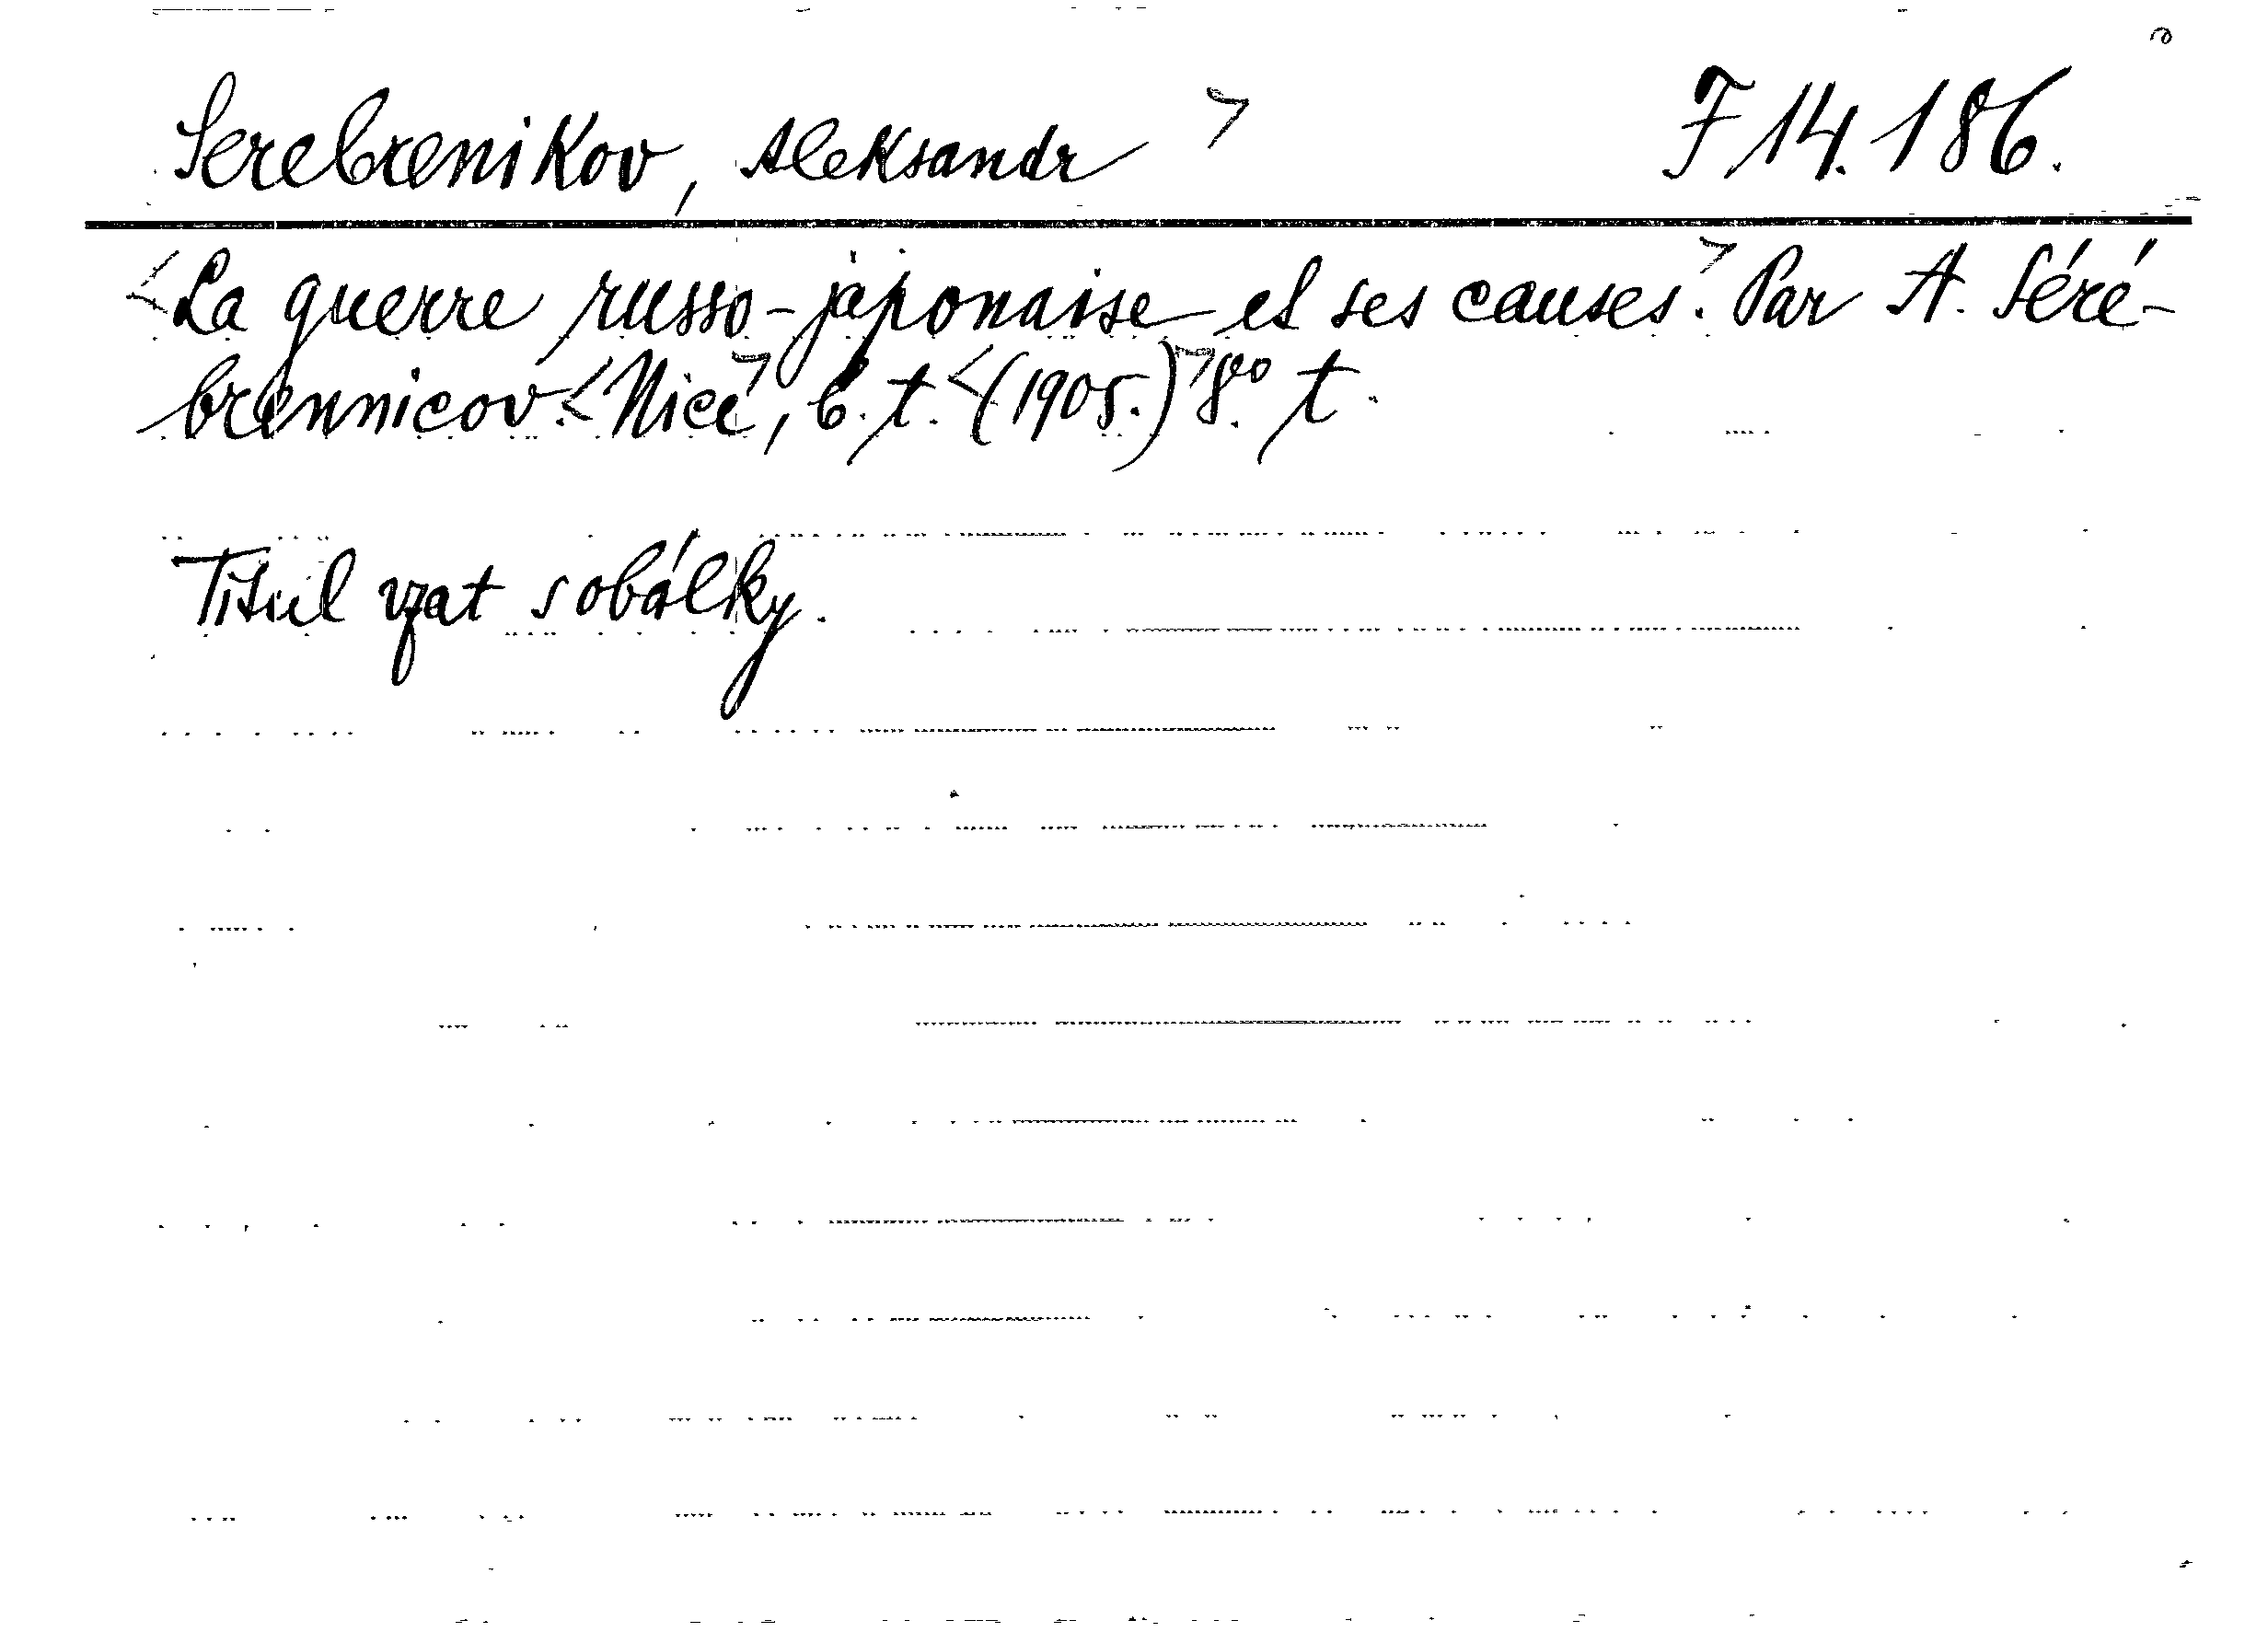 Serebrenikov, Aleksandr > F 14.186.
<La guerre russo-japonaise et ses causes.> Par A. Séré-
brennicov. <Nice>, b. t. <(1905.)> 8° t.
Titul vzat s obálky.